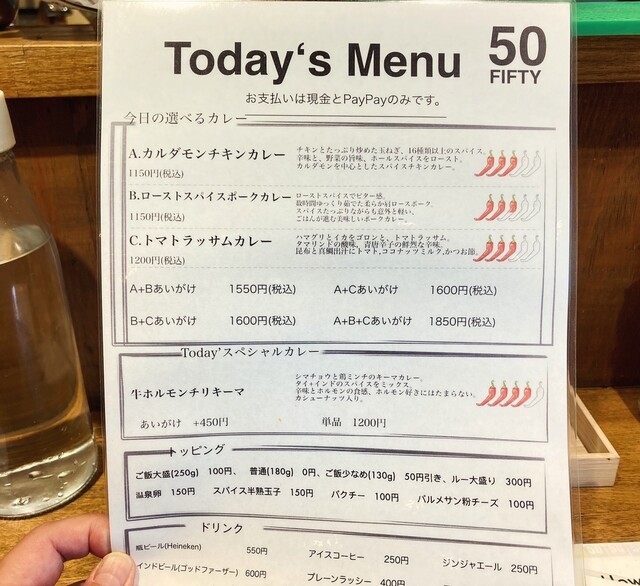 Today's Menu
50
FIFTY
お支払いは現金とPayPayのみです。
今日の選べるカレー
A.カルダモンチキンカレー
1150円(税込)
チキンとたっぷり炒めた玉ねぎ、16種類以上のスパイス。
辛味と、野菜の旨味、ホールスパイスをロースト。
カルダモンを中心としたスパイスチキンカレー。
B.ローストスパイスポークカレー
1150円(税込)
ローストスパイスでビター感。
数時間ゆっくり茹でた柔らか肩ロースポーク。
スパイスたっぷりながらも意外と軽い。
ごはんが進む美味しいポークカレー。
C.トマトラッサムカレー
1200円(税込)
ハマグリとイカをゴロンと、トマトラッサム。
タマリンドの酸味、青唐辛子の鮮烈な辛味。
昆布と真鯛出汁にトマト,ココナッツミルク,かつお節。
A+Bあいがけ 1550円(税込) A+Cあいがけ 1600円(税込)
B+Cあいがけ 1600円(税込) A+B+Cあいがけ 1850円(税込)
Today'スペシャルカレー
牛ホルモンチリキーマ
シマチョウと鶏ミンチのキーマカレー。
タイ+インドのスパイスをミックス。
辛味とホルモンの食感、ホルモン好きにはたまらない。
カシューナッツ入り。
あいがけ +450円 単品 1200円
トッピング
ご飯大盛(250g) 100円、 普通(180g) 0円、ご飯少なめ(130g) 50円引き、ルー大盛り 300円
温泉卵 150円 スパイス半熟玉子 150円 パクチー 100円 パルメザン粉チーズ 100円
ドリンク
瓶ビール(Heineken) 550円 アイスコーヒー 250円 ジンジャエール 250円
インドビール(ゴッドファーザー) 600円 プレーンラッシー 400円